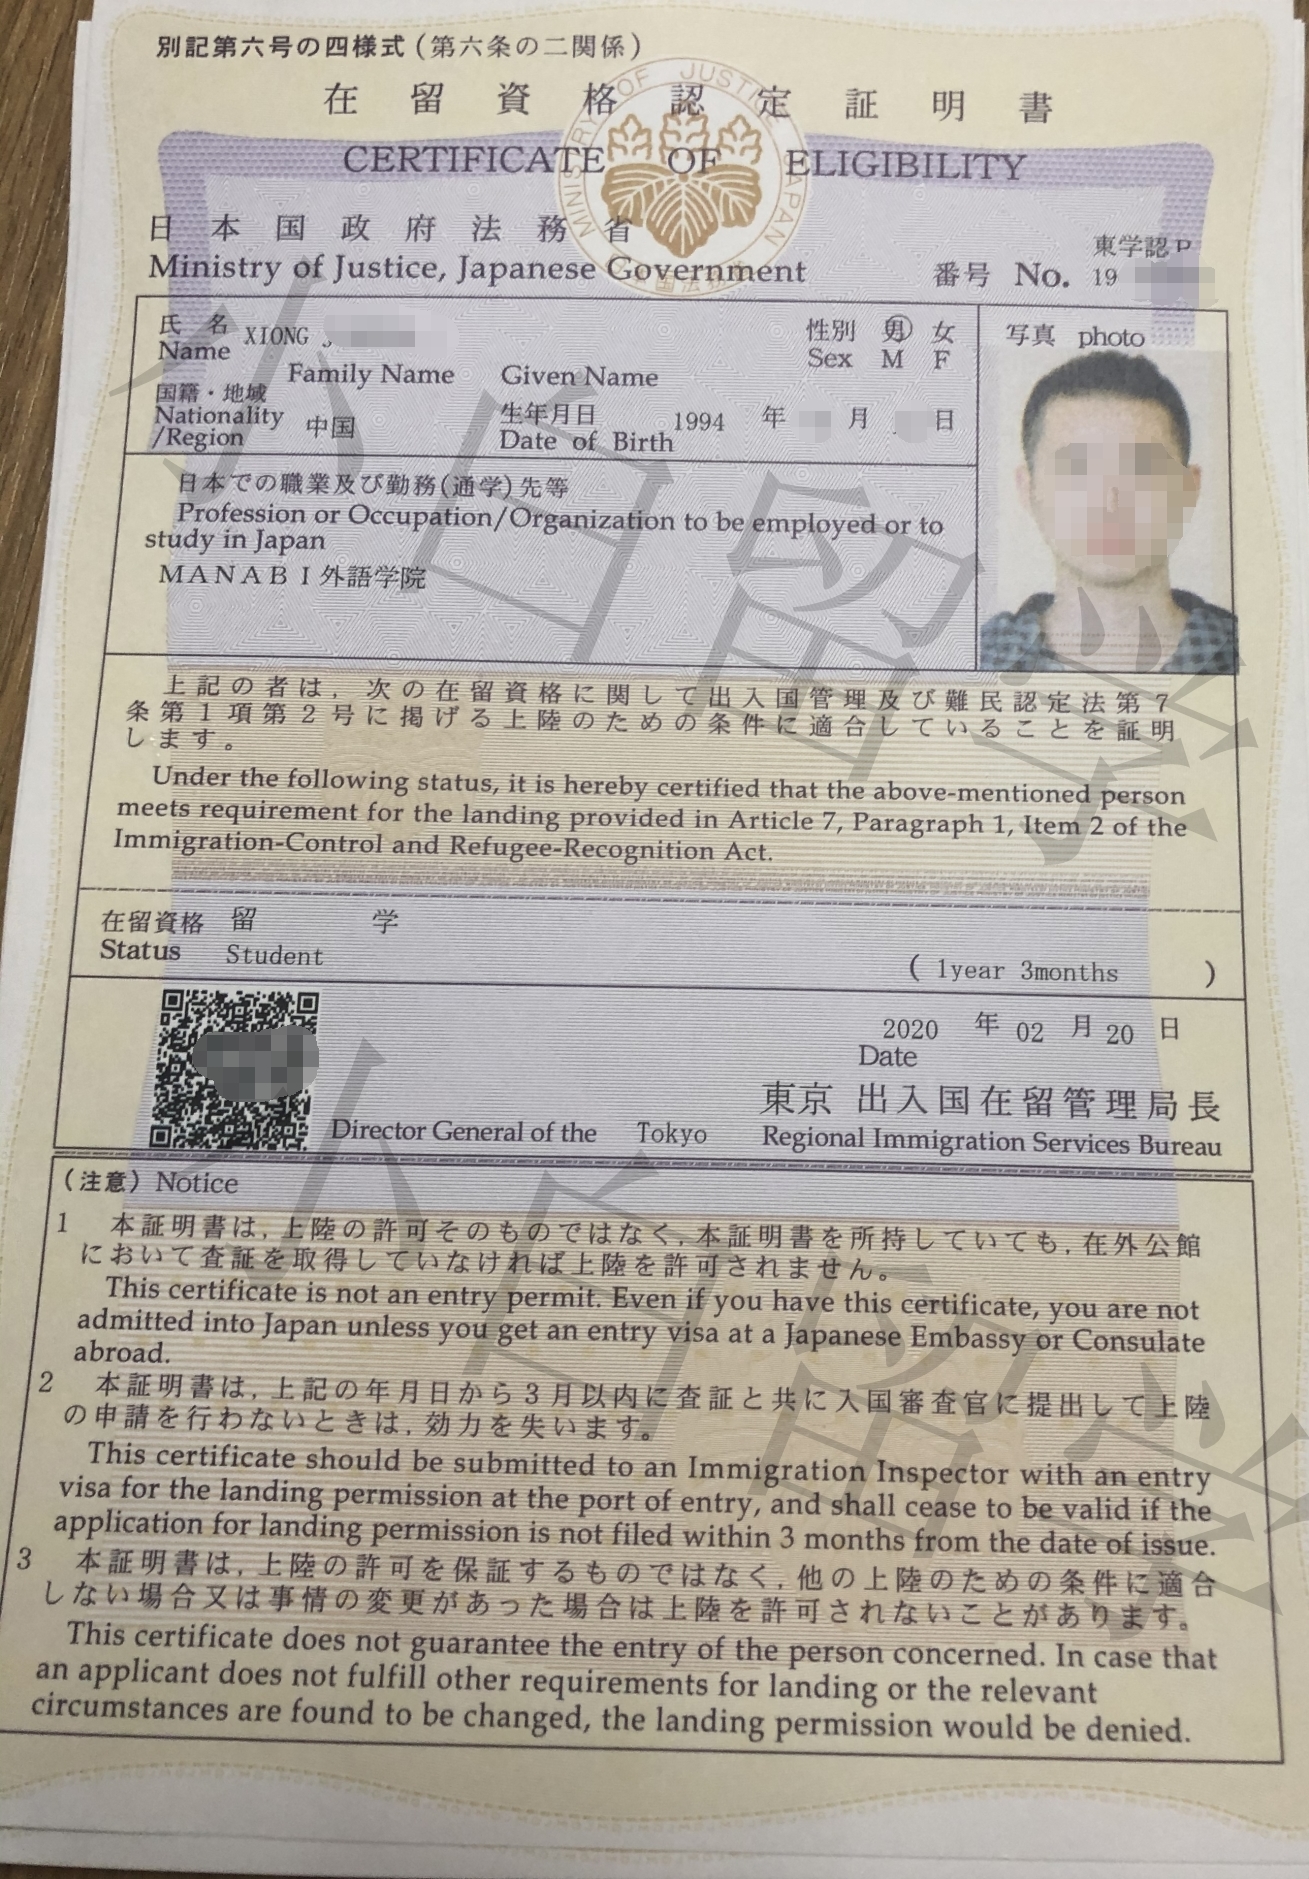 別記第六号の四様式(第六条の二関係)
在留資格認定証明書
CERTIFICATE OF ELIGIBILITY
MINISTRY OF JUSTICE JAPAN
日本国政府法務省
Ministry of Justice, Japanese Government
東学認P
番号 No. 19
氏名 XIONG
Name
Family Name Given Name
性別 男 女
Sex M F
写真 photo
国籍・地域
Nationality
/Region
中国
生年月日
Date of Birth
1994 年 月 日
日本での職業及び勤務(通学)先等
Profession or Occupation/Organization to be employed or to
study in Japan
MANABI外語学院
上記の者は,次の在留資格に関して出入国管理及び難民認定法第7
条第1項第2号に掲げる上陸のための条件に適合していることを証明
します。
Under the following status, it is hereby certified that the above-mentioned person
meets requirement for the landing provided in Article 7, Paragraph 1, Item 2 of the
Immigration-Control and Refugee-Recognition Act.
在留資格 留 学
Status Student
( 1year 3months )
2020 年 02 月 20 日
Date
東京 出入国在留管理局長
Director General of the Tokyo Regional Immigration Services Bureau
(注意) Notice
1 本証明書は,上陸の許可そのものではなく,本証明書を所持していても,在外公館
において査証を取得していなければ上陸を許可されません。
This certificate is not an entry permit. Even if you have this certificate, you are not
admitted into Japan unless you get an entry visa at a Japanese Embassy or Consulate
abroad.
2 本証明書は,上記の年月日から3月以内に査証と共に入国審査官に提出して上陸
の申請を行わないときは,効力を失います。
This certificate should be submitted to an Immigration Inspector with an entry
visa for the landing permission at the port of entry, and shall cease to be valid if the
application for landing permission is not filed within 3 months from the date of issue.
3 本証明書は,上陸の許可を保証するものではなく,他の上陸のための条件に適合
しない場合又は事情の変更があった場合は上陸を許可されないことがあります。
This certificate does not guarantee the entry of the person concerned. In case that
an applicant does not fulfill other requirements for landing or the relevant
circumstances are found to be changed, the landing permission would be denied.
小白留学
小白留学